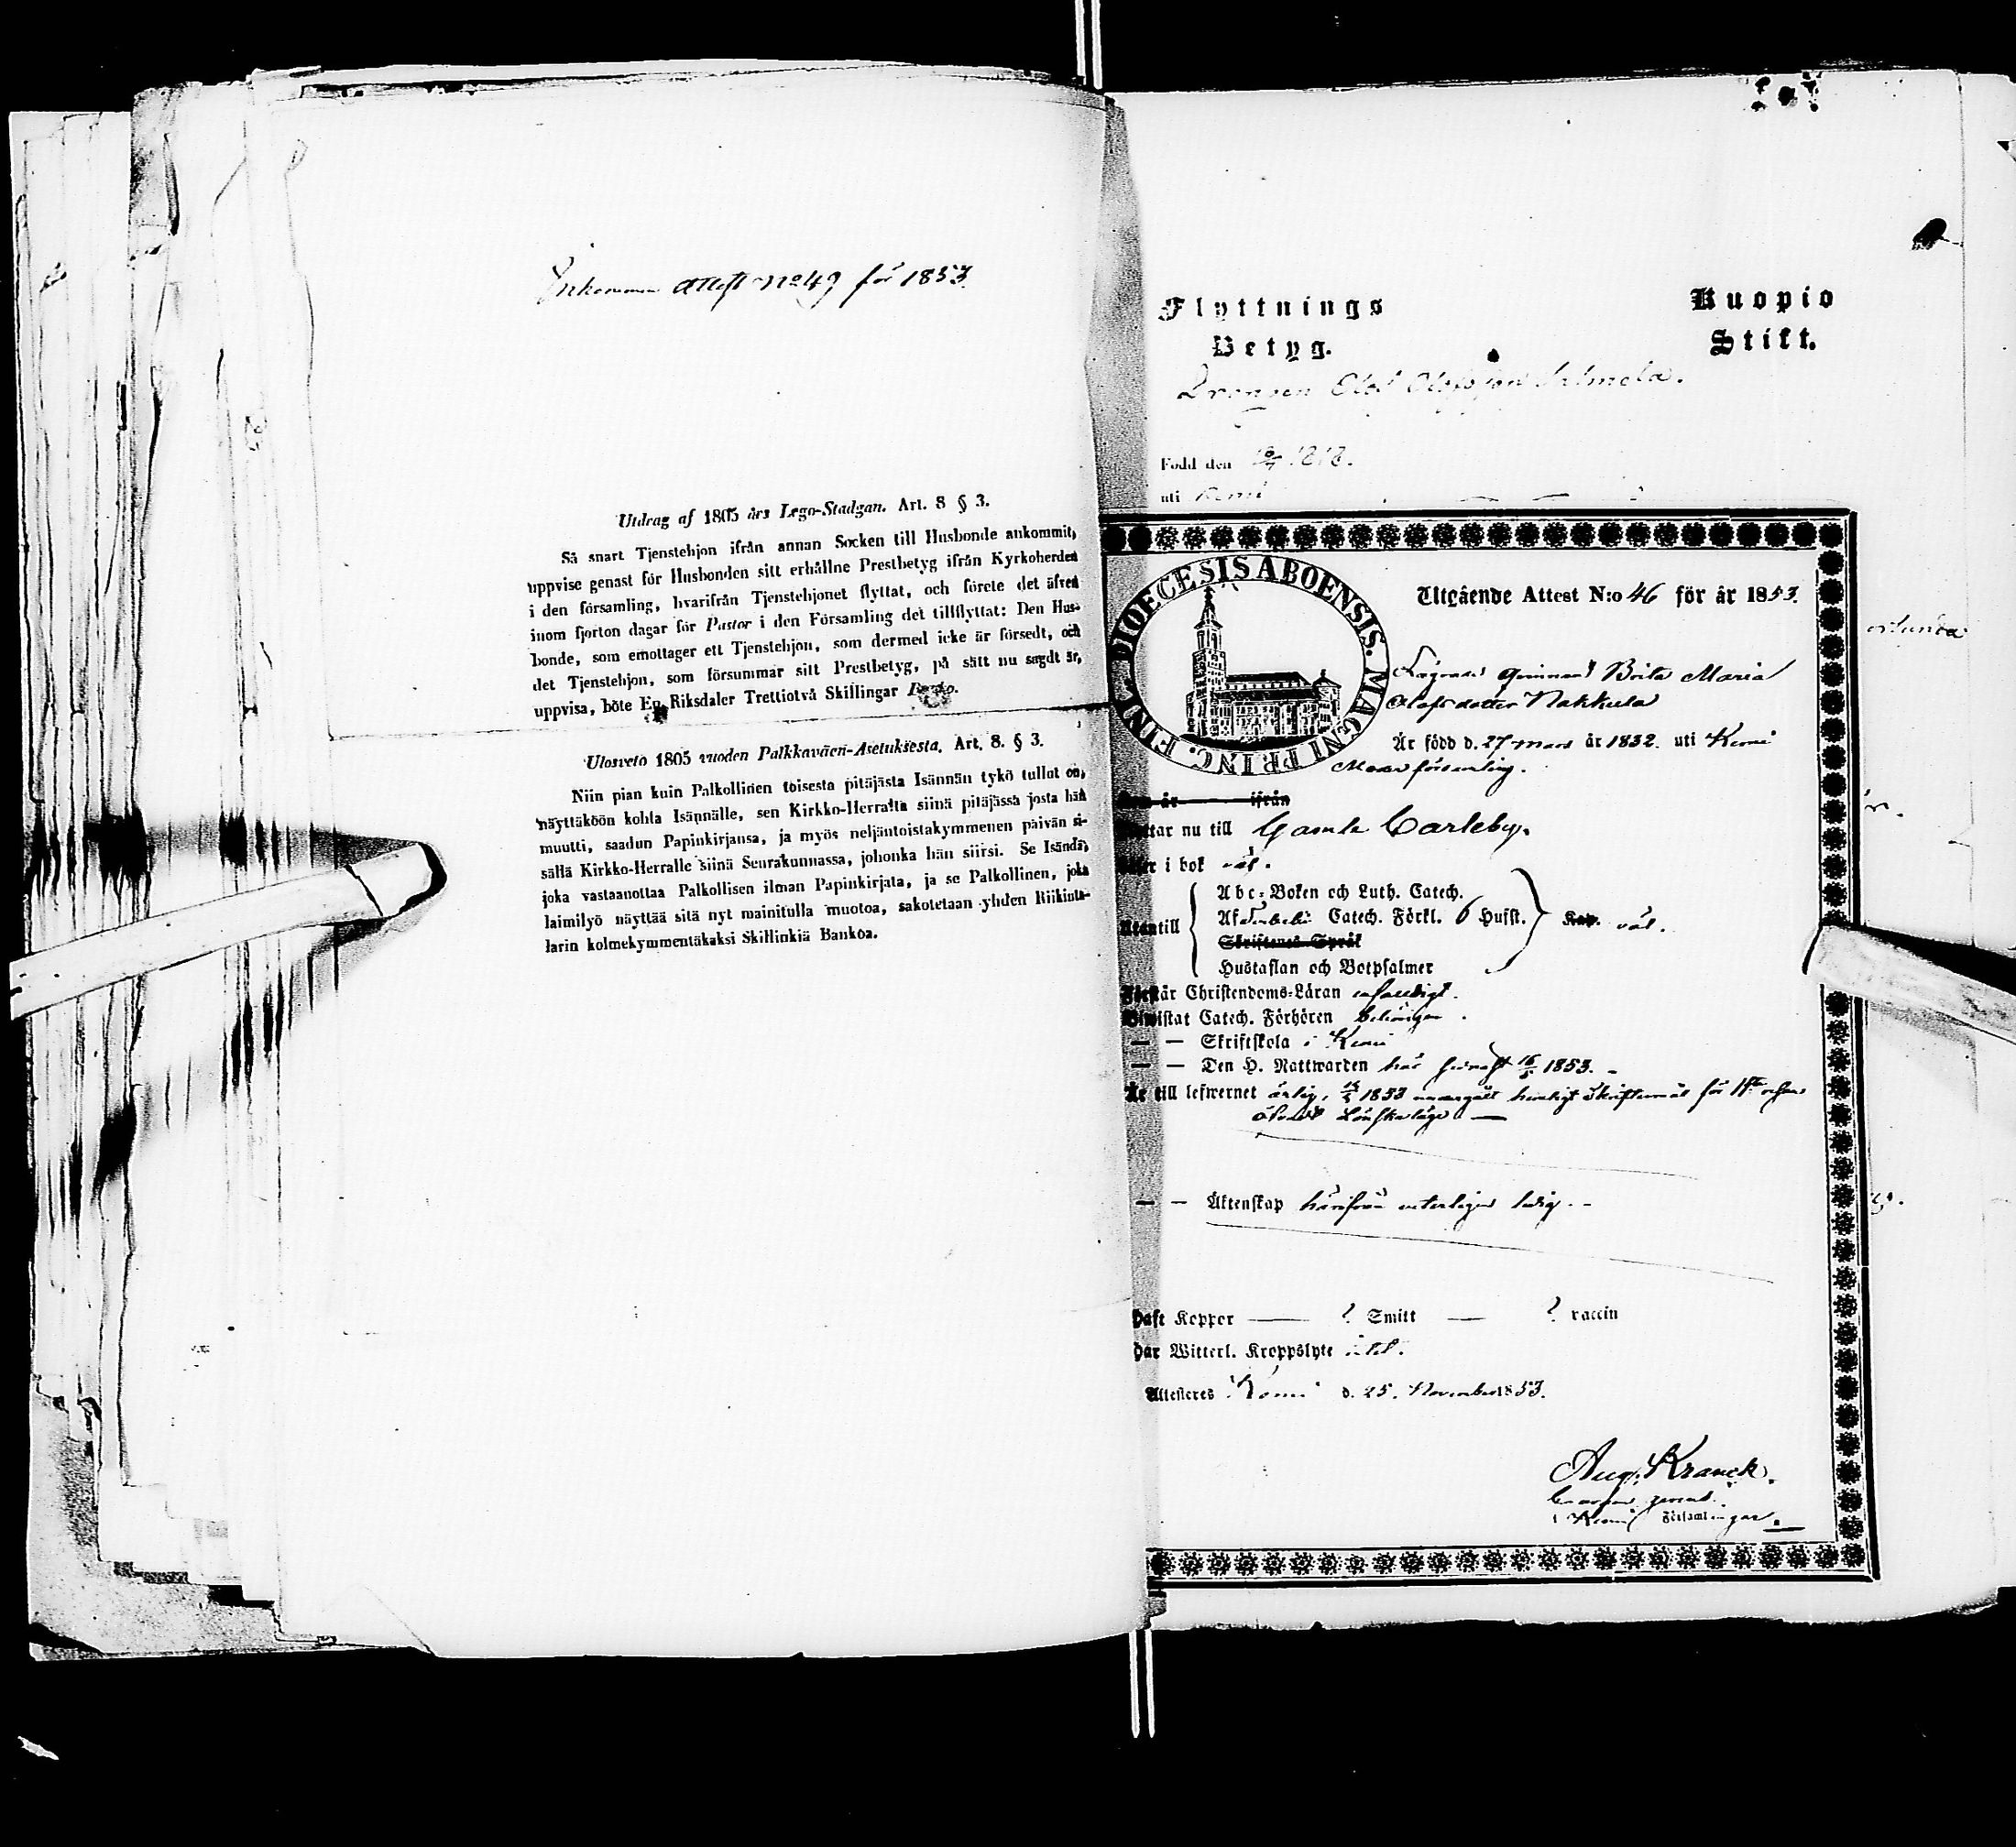 Inkommen Attest No 49 för 1853.
Utdrag af 1805 års Lego-Stadgan. Art. 8 § 3.
Så snart Tjenstehjon ifrån annan Socken till Husbonde ankommit,
uppvise genast för Husbonden sitt erhållne Prestbetyg ifrån Kyrkoherden
i den församling, hvarifrån Tjenstehjonet flyttat, och förete det äfven
inom fjorton dagar för Pastor i den Församling det tillflyttat: Den Hus-
bonde, som emottager ett Tjenstehjon, som dermed icke är försedt, och
det Tjenstehjon, som försummar sitt Prestbetyg, på sätt nu sagdt är,
uppvisa, böte En Riksdaler Trettiotvå Skillingar Banko.
Ulosveto 1805 vuoden Palkkaväen-Asetuksesta. Art. 8. § 3.
Niin pian kuin Palkollinen toisesta pitäjästa Isännän tykö tullut on,
näyttäköön kohta Isännälle, sen Kirkko-Herralta siinä pitäjässä josta hän
muutti, saadun Papinkirjansa, ja myös neljäntoistakymmenen päivän si-
sällä Kirkko-Herralle siinä Seurakunnassa, johonka hän siirsi. Se Isändä,
joka vastaanottaa Palkollisen ilman Papinkirjata, ja se Palkollinen, joka
laimilyö näyttää sitä nyt mainitulla muotoa, sakotetaan yhden Riikinta-
larin kolmekymmentäkaksi Skillinkiä Bankoa.
Flyttnings
Betyg.
Kuopio
Stift.
Drängen Olof Olofsson Salmela.
Född den 1818.
uti Kemi
DIOECESIS ABOENSIS. MAGNI PRINC. FINL.
Utgående Attest N:o 46 för år 1853.
qvinnan Brita Maria
Olofsdotter Nakkula
Är född d. 27 mars år 1832. uti Kemi
Moder församling.
Som är ifrån
Flyttar nu till Gamle Carleby.
Läser i bok väl.
Utantill
Abc-Boken och Luth. Catech.
Af Catech. Förkl. 6 Hufst.
Skriftenes Språk
Hustaflan och Botpsalmer
Kap. väl.
Förstår Christendoms-Läran
Biwistat Catech. Förhören behörigen.
— — Skriftskola i Kemi
— — Den H. Nattwarden här 1853.
Är till lefwernet ärlig, 1853 hemligt Skriftermål för 1sta
Lönskaläge —
— — Äktenskap härifrån veterligen ledig. -
Haft Koppor —— ? Smitt — ? vaccin
Har Witterl. Kroppslyte
Attesteres Kemi d. 25. November 1853.
Aug. Kranck.
i Kemi Församlingar.